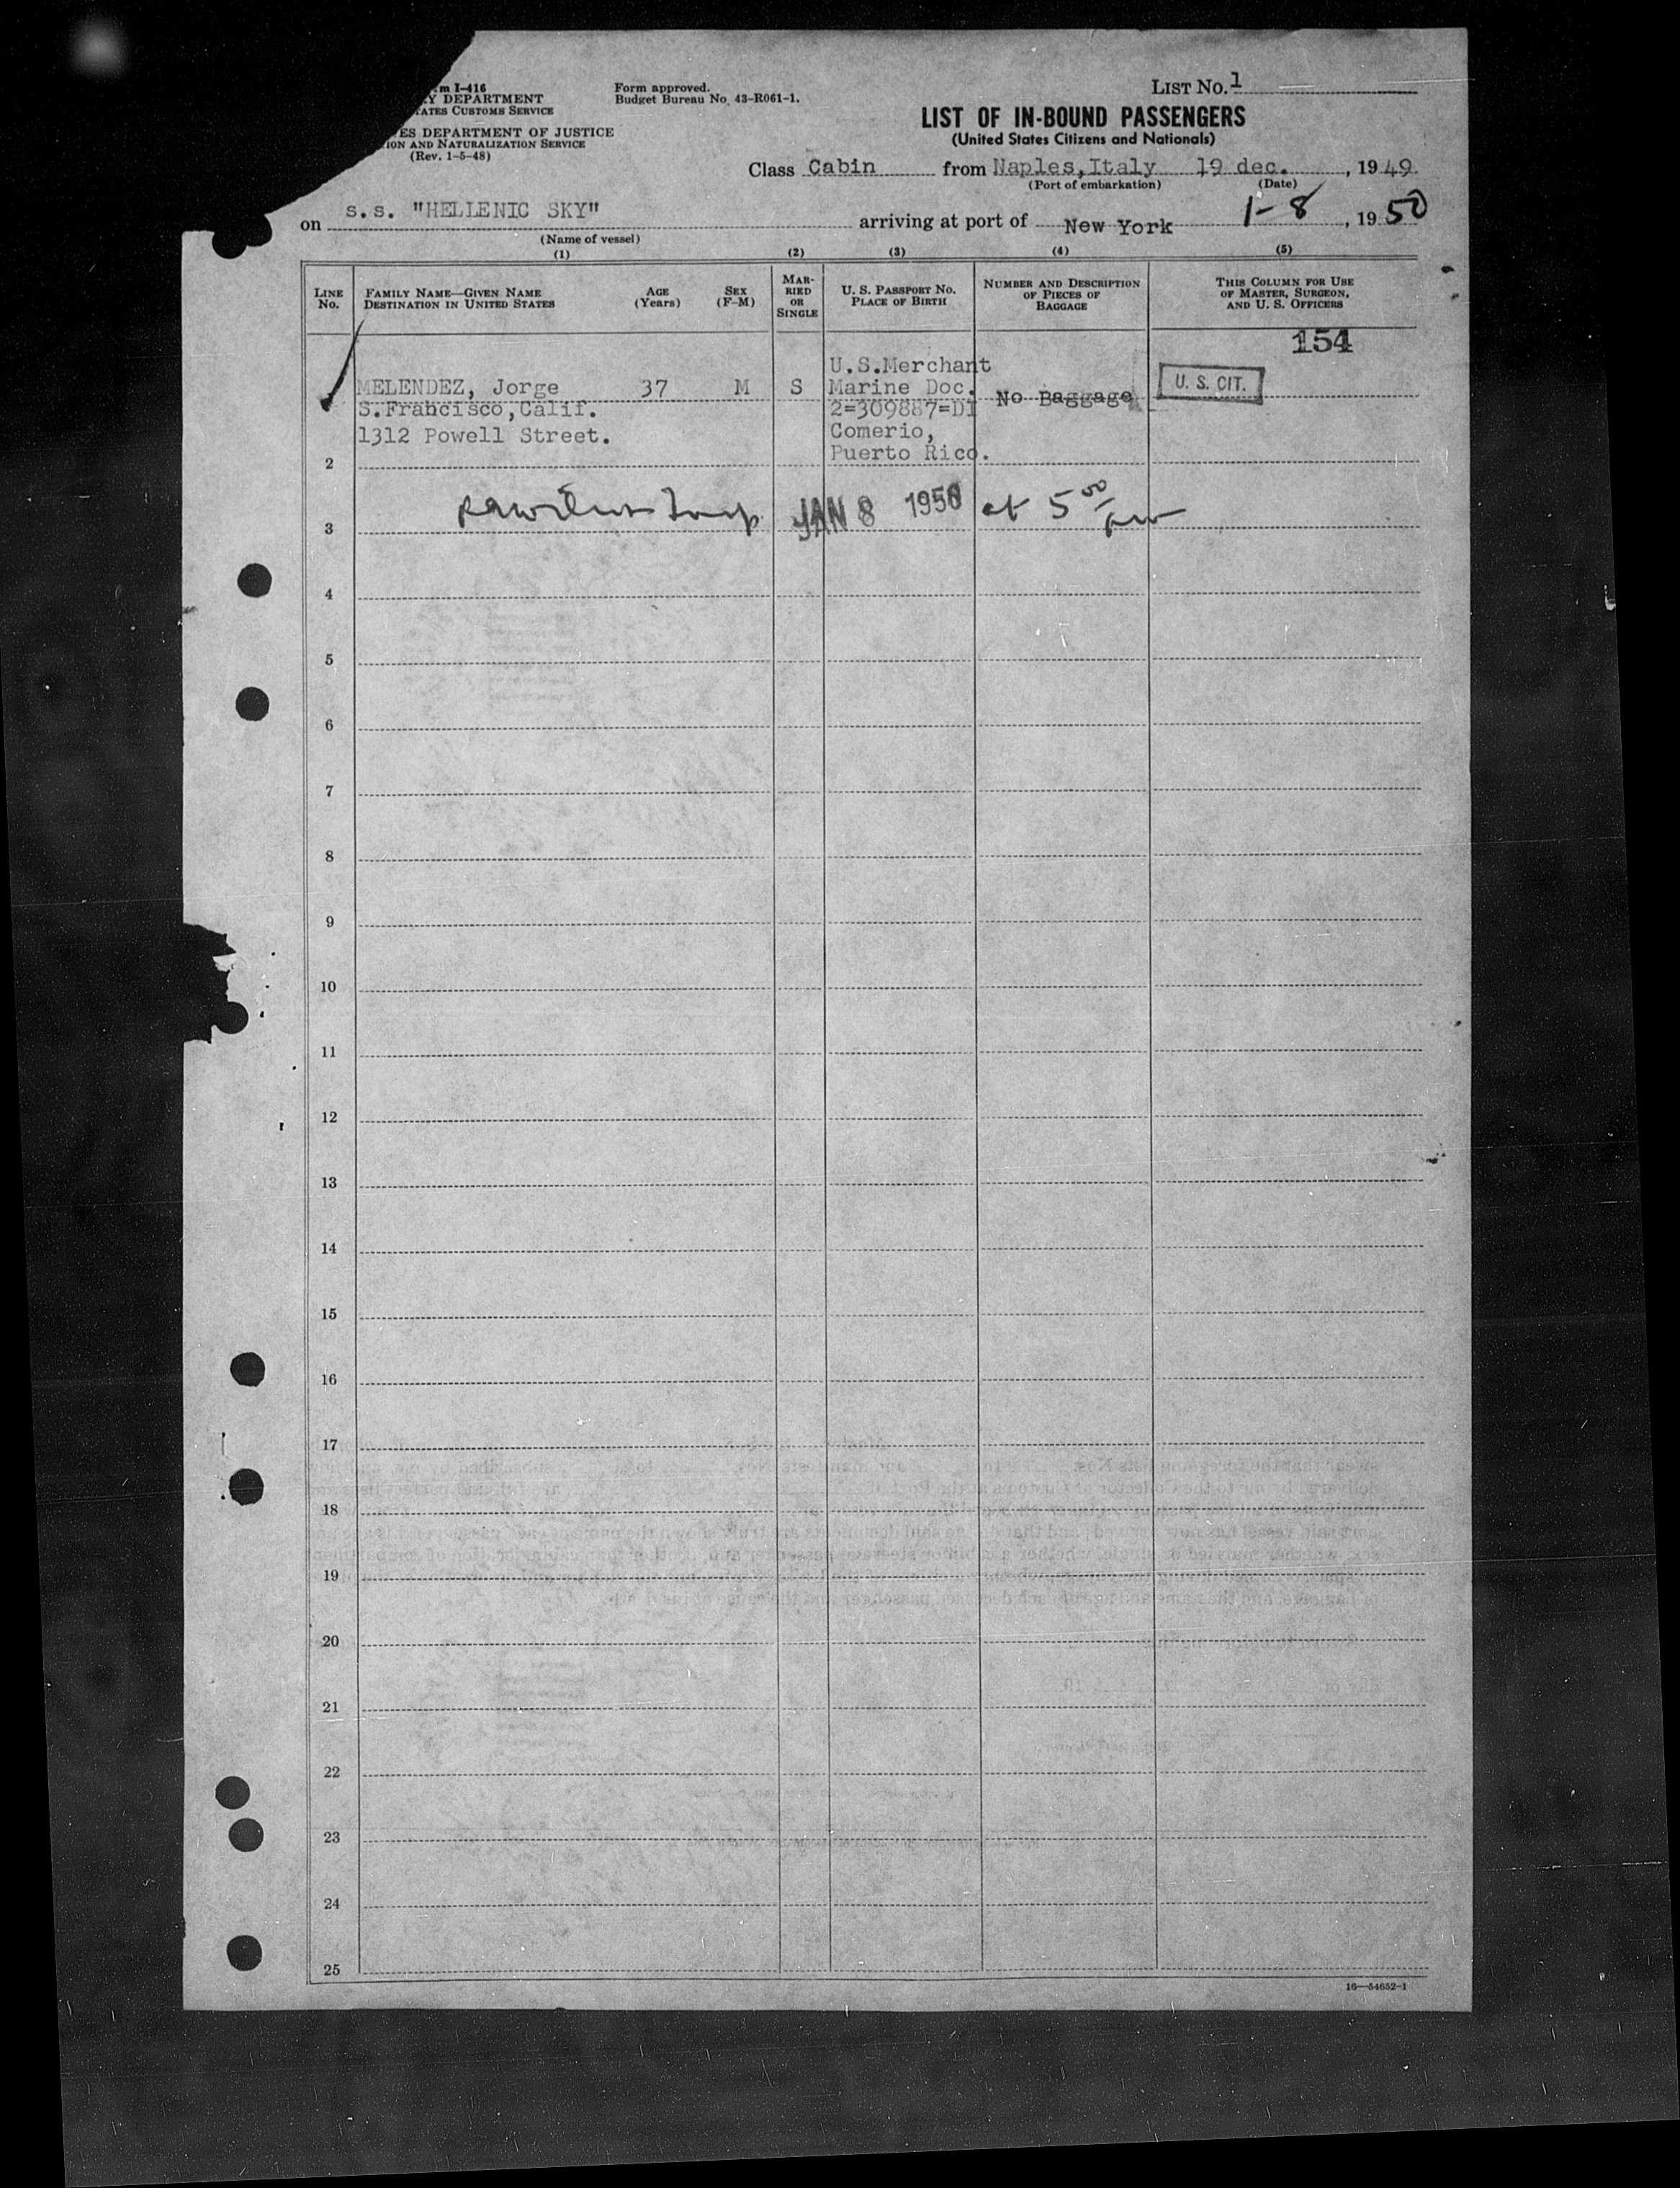 m I-416
Y DEPARTMENT
ATES CUSTOMS SERVICE
ES DEPARTMENT OF JUSTICE
ION AND NATURALIZATION SERVICE
(Rev. 1-5-48)
Form approved.
Budget Bureau No. 43-R061-1.
LIST No. 1
LIST OF IN-BOUND PASSENGERS
(United States Citizens and Nationals)
Class Cabin from Naples, Italy 19 dec., 1949
(Port of embarkation) (Date)
on s.s. "HELLENIC SKY" arriving at port of New York 1-8, 1950
(Name of vessel)
(1) (2) (3) (4) (5)
LINE No. FAMILY NAME—GIVEN NAME DESTINATION IN UNITED STATES AGE (Years) SEX (F-M) MARRIED OR SINGLE U. S. PASSPORT No. PLACE OF BIRTH NUMBER AND DESCRIPTION OF PIECES OF BAGGAGE THIS COLUMN FOR USE OF MASTER, SURGEON, AND U. S. OFFICERS
154
U.S.Merchant
MELENDEZ, Jorge 37 M S Marine Doc. No Baggage U. S. CIT.
S.Francisco,Calif. 2=309887=D1
1312 Powell Street. Comerio,
Puerto Rico.
2
JAN 8 1950 at 5 00 pm
3
4
5
6
7
8
9
10
11
12
13
14
15
16
17
18
19
20
21
22
23
24
25
16—54652-1